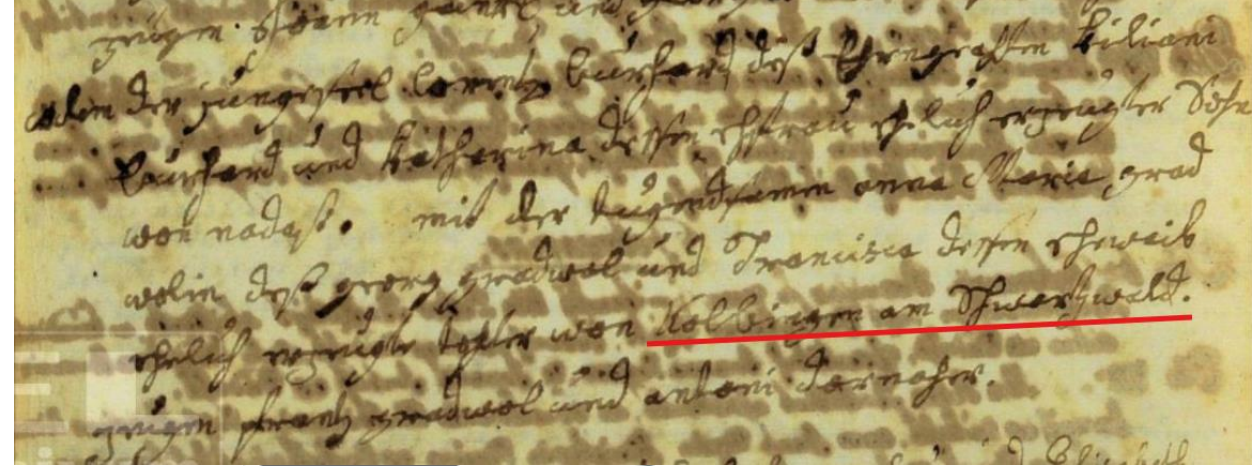 zeugen Joann und
eodem der jungesell lorentz burhard deß Ehrengeachten Kiliani
burhard und Katharina dessen ehfrau ehelich erzeugter Sohn
von nadaß. mit der tugendsamen anna Maria grad
wolin deß georg gradwol und Francisca dessen eheweib
ehelich erzeugte tochter von Kolbingen am Schwartzwald.
zeugen frantz gradwol und antoni dornaher.
Elisabeth